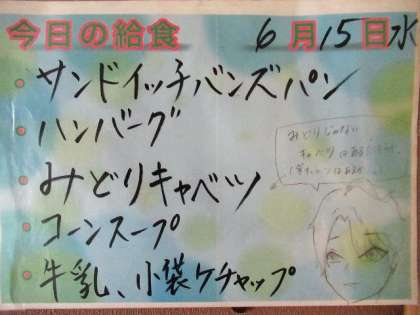 今日の給食 6月15日水
サンドイッチバンズパン
ハンバーグ
みどりキャベツ
コーンスープ
牛乳、小袋ケチャップ
みどりじゃない
キャベツは